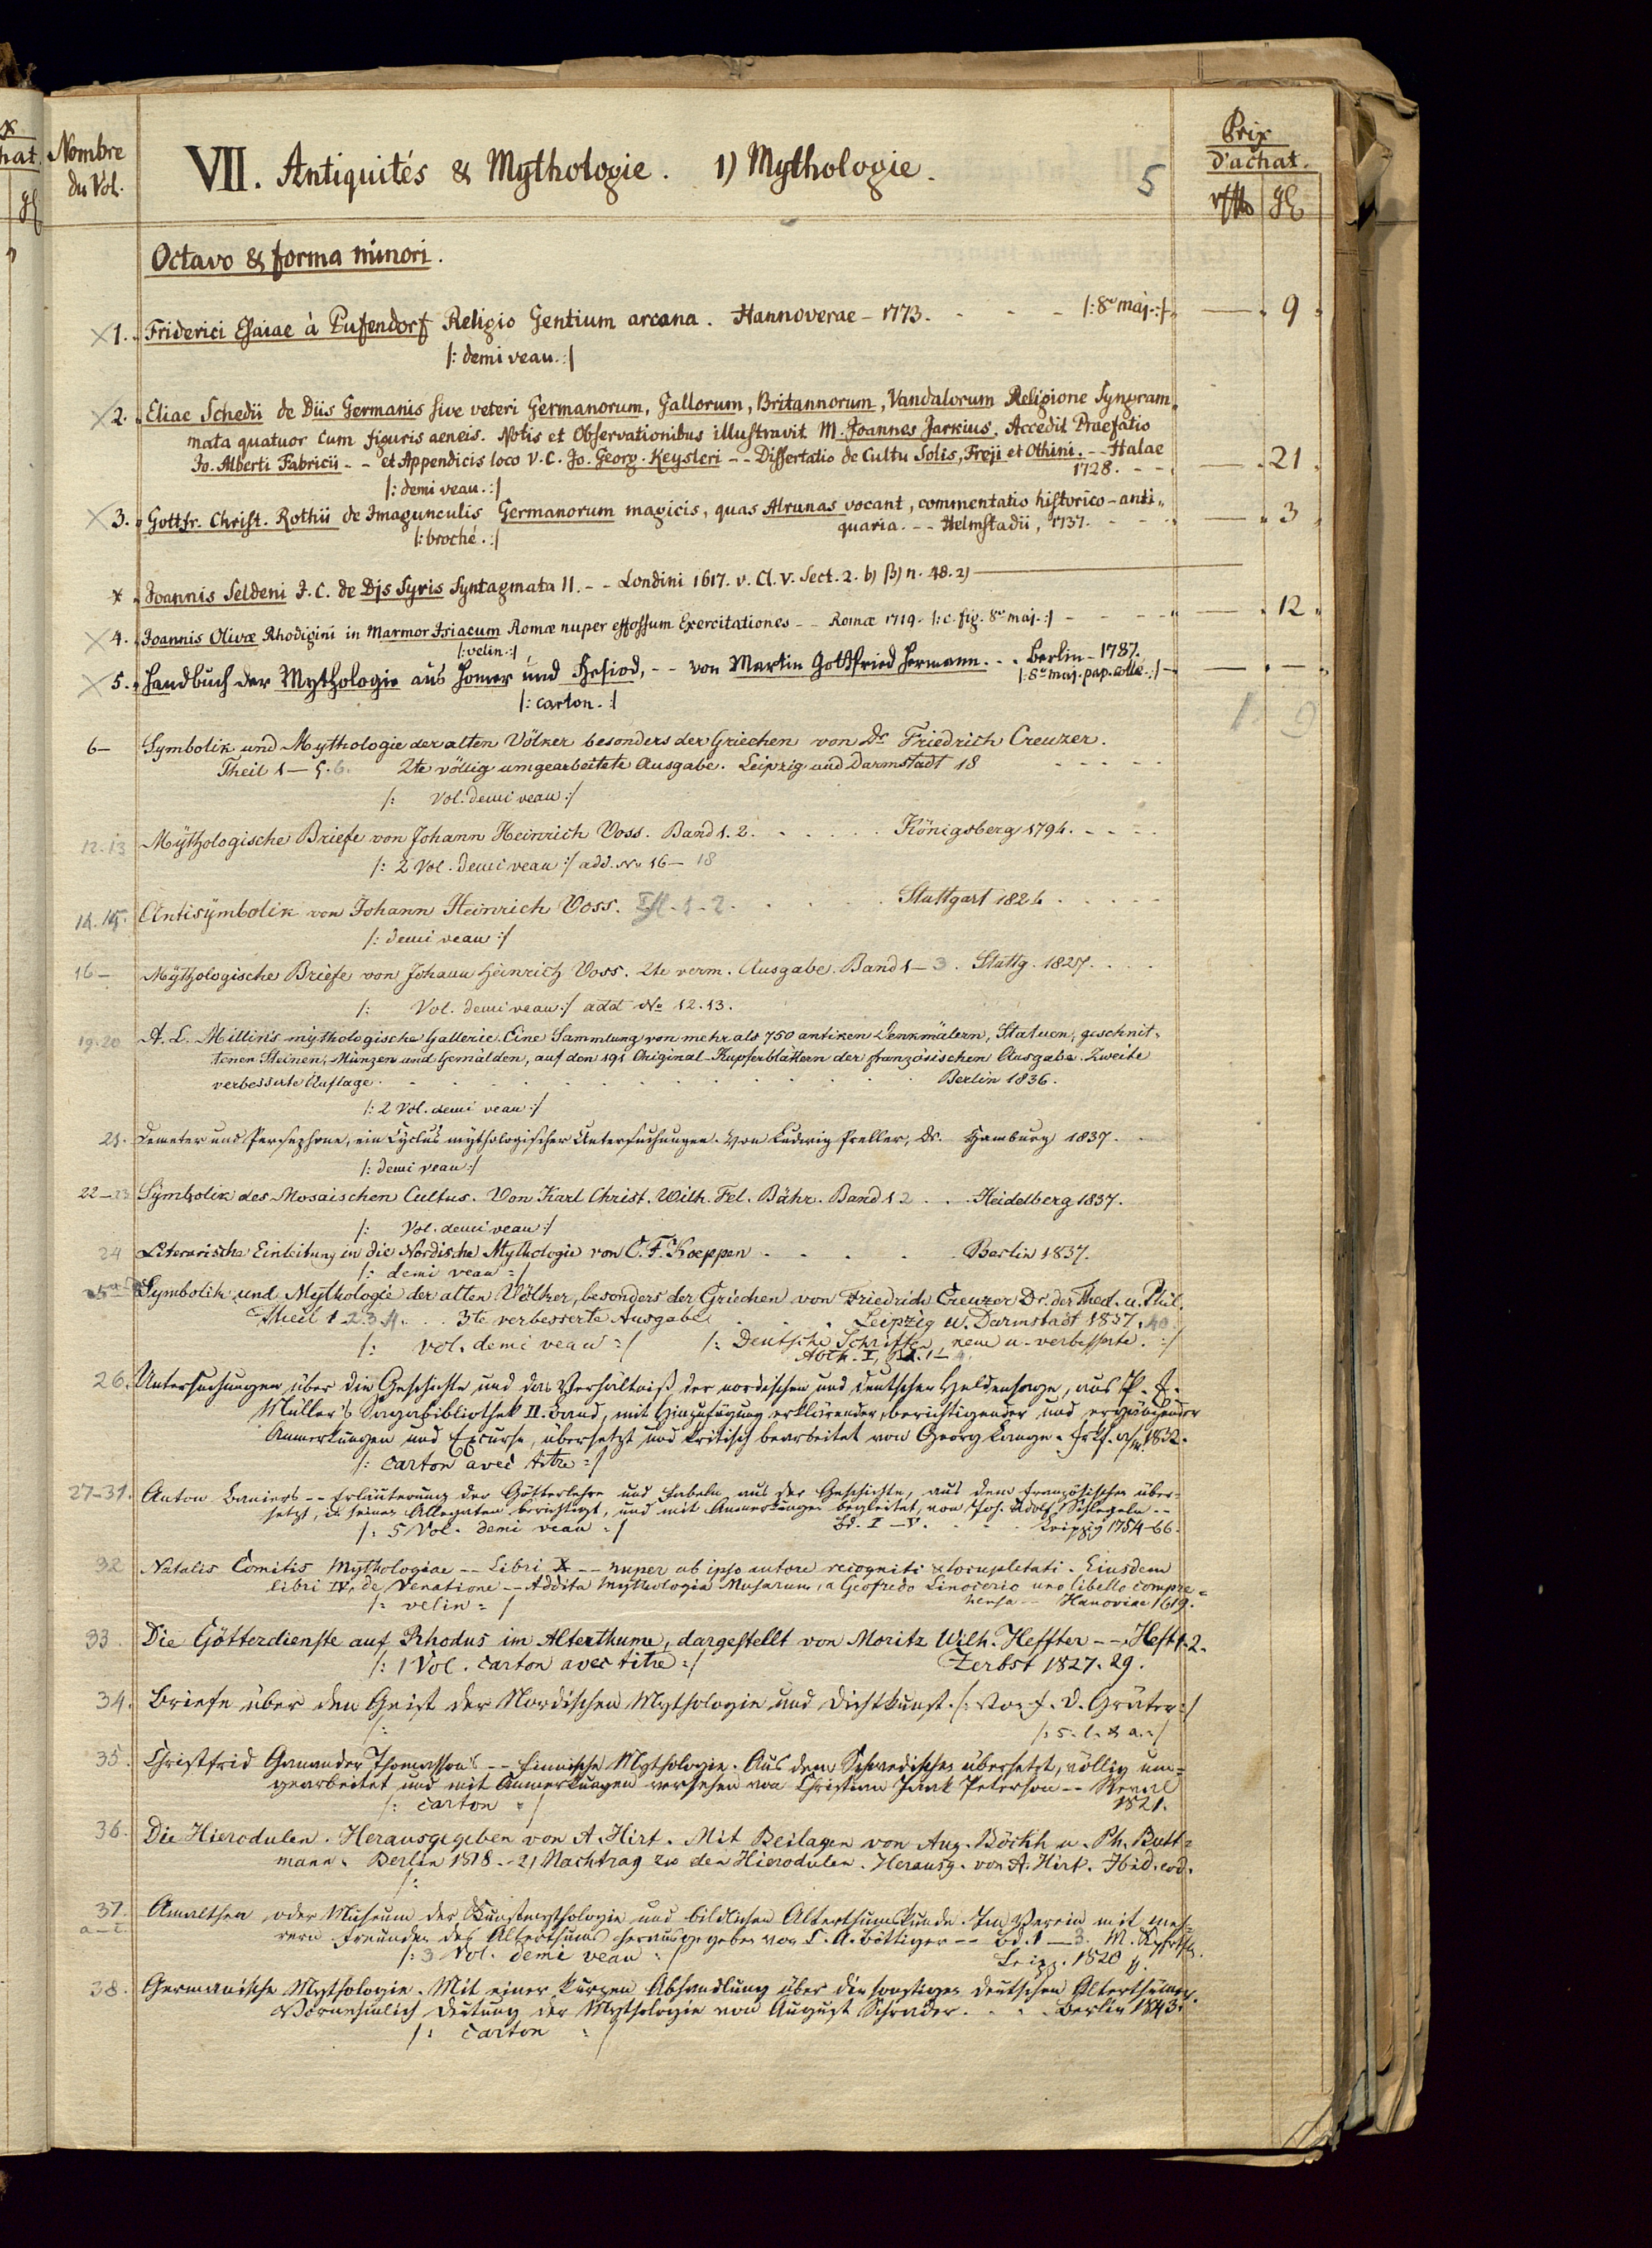 Nombre du Vol.
VII. Antiquités & Mythologie. 1) Mythologie.
5
Prix d'achat.
Octavo & forma minori.
1. Friderici Esaiae à Pufendorf Religio Gentium arcana. Hannoverae - 1773. - - - |: 8vo maj. :| — 9
|: demi veau. :|
2. Eliae Schedii de Diis Germanis sive veteri Germanorum, Gallorum, Britannorum, Vandalorum Religione Syngram-
mata quatuor cum figuris aeneis. Notis et Observationibus illustravit M. Joannes Jarkius. Accedit Praefatio
Jo. Alberti Fabricii - - et Appendicis loco V. C. Jo. Georg. Keysleri - - Dissertatio de Cultu Solis, Freji et Othini. - - Halae
1728. - - — 21
|: demi veau. :|
3. Gottfr. Christ. Rothii de Imagunculis Germanorum magicis, quas Alrunas vocant, commentatio historico-anti-
quaria. - - Helmstadii, 1737. - - — 3
|: broché. :|
* Joannis Seldeni J. C. de Djs Syris Syntagmata II. - - Londini 1617. v. Cl. V. Sect. 2. b) β) n. 48. 2) —
4. Joannis Olivæ Rhodigini in Marmor Isiacum Romæ nuper effossum Exercitationes - - Romæ 1719. |: c. fig. 8vo maj. :| - - — 12
|: velin. :|
5. Handbuch der Mythologie aus Homer und Hesiod, - - von Martin Gottfried Hermann. - - Berlin - 1787.
|: 8vo maj. pap. collé. :| — —
|: carton. :|
1. 9
6— Symbolik und Mythologie der alten Völker besonders der Griechen von Dr. Friedrich Creuzer.
Theil 1—5. 6. 2te völlig umgearbeitete Ausgabe. Leipzig und Darmstadt 18 - - - - -
|: Vol. demi veau :|
12. 13 Mythologische Briefe von Johann Heinrich Voss. Band 1. 2. - - - - Königsberg 1794. - - - -
|: 2 Vol. demi veau :| add. No 16— 18
14. 15. Antisymbolik von Johann Heinrich Voss. Thl. 1-2. - - - - Stuttgart 1824 - - - - -
|: demi veau :|
16— Mythologische Briefe von Johann Heinrich Voss. 2te verm. Ausgabe. Band 1—3. Stuttg. 1827. - - -
|: Vol. demi veau :| add No 12. 13.
19. 20 A. L. Millin's mythologische Gallerie. Eine Sammlung von mehr als 750 antiken Denkmälern, Statuen, geschnit-
tenen Steinen, Münzen und Gemälden, auf den 191 Original-Kupferblättern der französischen Ausgabe. Zweite
verbesserte Auflage. - - - - - - Berlin 1836.
|: 2 Vol. demi veau :|
21. Demeter und Persephone, ein Cyclus mythologischer Untersuchungen. Von Ludwig Preller, Dr. Hamburg 1837. -
|: demi veau :|
22—23 Symbolik des Mosaischen Cultus. Von Karl Christ. Wilh. Fel. Bähr. Band 1 2 - - Heidelberg 1837.
|: Vol. demi veau :|
24 Literarische Einleitung in die Nordische Mythologie von C. F. Koeppen - - - - Berlin 1837.
|: demi veau :|
Symbolik und Mythologie der alten Völker, besonders der Griechen von Friedrich Creuzer Dr. der Theol. u. Phil.
Theil 1. 2. 3. 4. - - 3te verbesserte Ausgabe - - - Leipzig u. Darmstadt 1837. 40
|: vol. demi veau :| |: Deutsche Schriften, neue u. verbesserte. :|
Abth. I, Bd. 1—4.
26. Untersuchungen über die Geschichte und das Verhältniß der nordischen und deutschen Heldensage, aus P. E.
Müller's Sagabibliothek II. Band, mit Hinzufügung erklärender, berichtigender und ergänzender
Anmerkungen und Excurse, übersetzt und kritisch bearbeitet von Georg Lange. Frkf. a/m. 1832.
|: carton avec titre :|
27-31. Anton Baniers - - Erläuterung der Götterlehre und Fabeln aus der Geschichte, aus dem französischen über-
setzt, in seinen Allegaten berichtigt, und mit Anmerkungen begleitet, von Joh. Adolf Schlegeln - -
|: 5 Vol. demi veau :| Bd. I—V. - - - Leipzig 1754-66.
32 Natalis Comitis Mythologiae - - Libri X - - nuper ab ipso autore recogniti & locupletati. Eiusdem
libri IV. de Venatione - - Addita Mythologia Musarum, a Geofredo Linocerio uno libello compre-
hensa - - Hanoviae 1619.
|: velin :|
33. Die Götterdienste auf Rhodus im Alterthume, dargestellt von Moritz Wilh. Heffter - - Heft 1. 2.
|: 1 Vol. carton avec titre :| Zerbst 1827. 29.
34. Briefe über den Geist der Nordischen Mythologie und Dichtkunst. |: Von F. D. Gräter :|
|: |: s. l. & a. :|
35. Christfrid Ganander Thomasson's - - Finnische Mythologie. Aus dem Schwedischen übersetzt, völlig um-
gearbeitet und mit Anmerkungen versehen von Christian Jaak Peterson - - Reval
|: carton :| 1821.
36. Die Hierodulen. Herausgegeben von A. Hirt. Mit Beilagen von Aug. Böckh u. Ph. Butt-
mann. Berlin 1818. - 2) Nachtrag zu den Hierodulen. Herausg. von A. Hirt. Ibid. eod.
|:
37. a—c. Amalthea, oder Museum der Kunstmythologie und bildlichen Alterthumskunde. Im Verein mit meh-
reren Freunden des Alterthums herausgegeben von C. A. Böttiger - - Bd. 1—3. M. Kpfrtfl.
|: 3 Vol. demi veau :| Leipz. 1820 ff.
38. Germanische Mythologie. Mit einer kurzen Abhandlung über die sonstigen deutschen Alterthümer.
Vornehmlich Deutung der Mythologie von August Schrader. - - - Berlin 1843.
|: carton :|